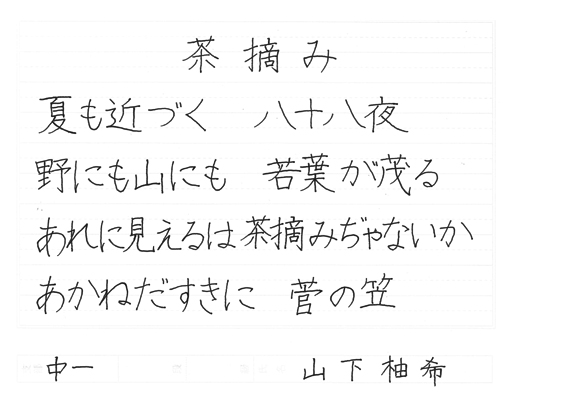 茶摘み
夏も近づく　八十八夜
野にも山にも　若葉が茂る
あれに見えるは茶摘みぢゃないか
あかねだすきに　菅の笠
中一　山下柚希